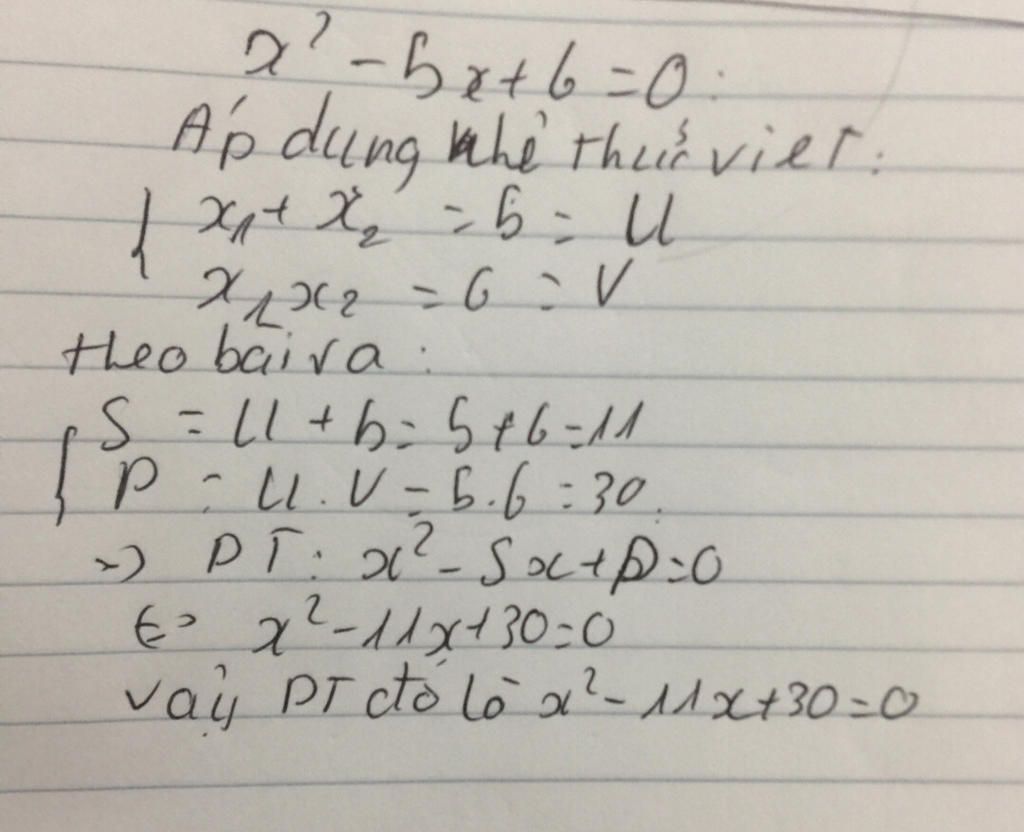 x² - 5x + 6 = 0 :
Áp dụng hệ thức viet :
{ x₁ + x₂ = 5 = U
x₁x₂ = 6 = V
theo bài ra :
{ S = U + b = 5 + 6 = 11
P = U . V = 5 . 6 = 30.
=> PT : x² - Sx + P = 0
<=> x² - 11x + 30 = 0
vậy PT đó là x² - 11x + 30 = 0